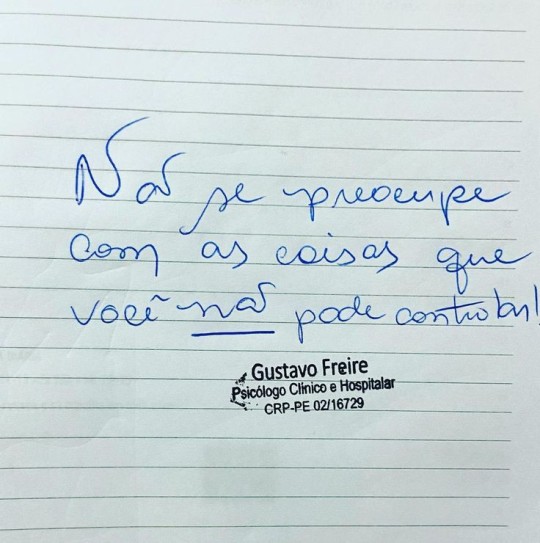 Não se preocupe
com as coisas que
você não pode controlar!
Gustavo Freire
Psicólogo Clínico e Hospitalar
CRP-PE 02/16729